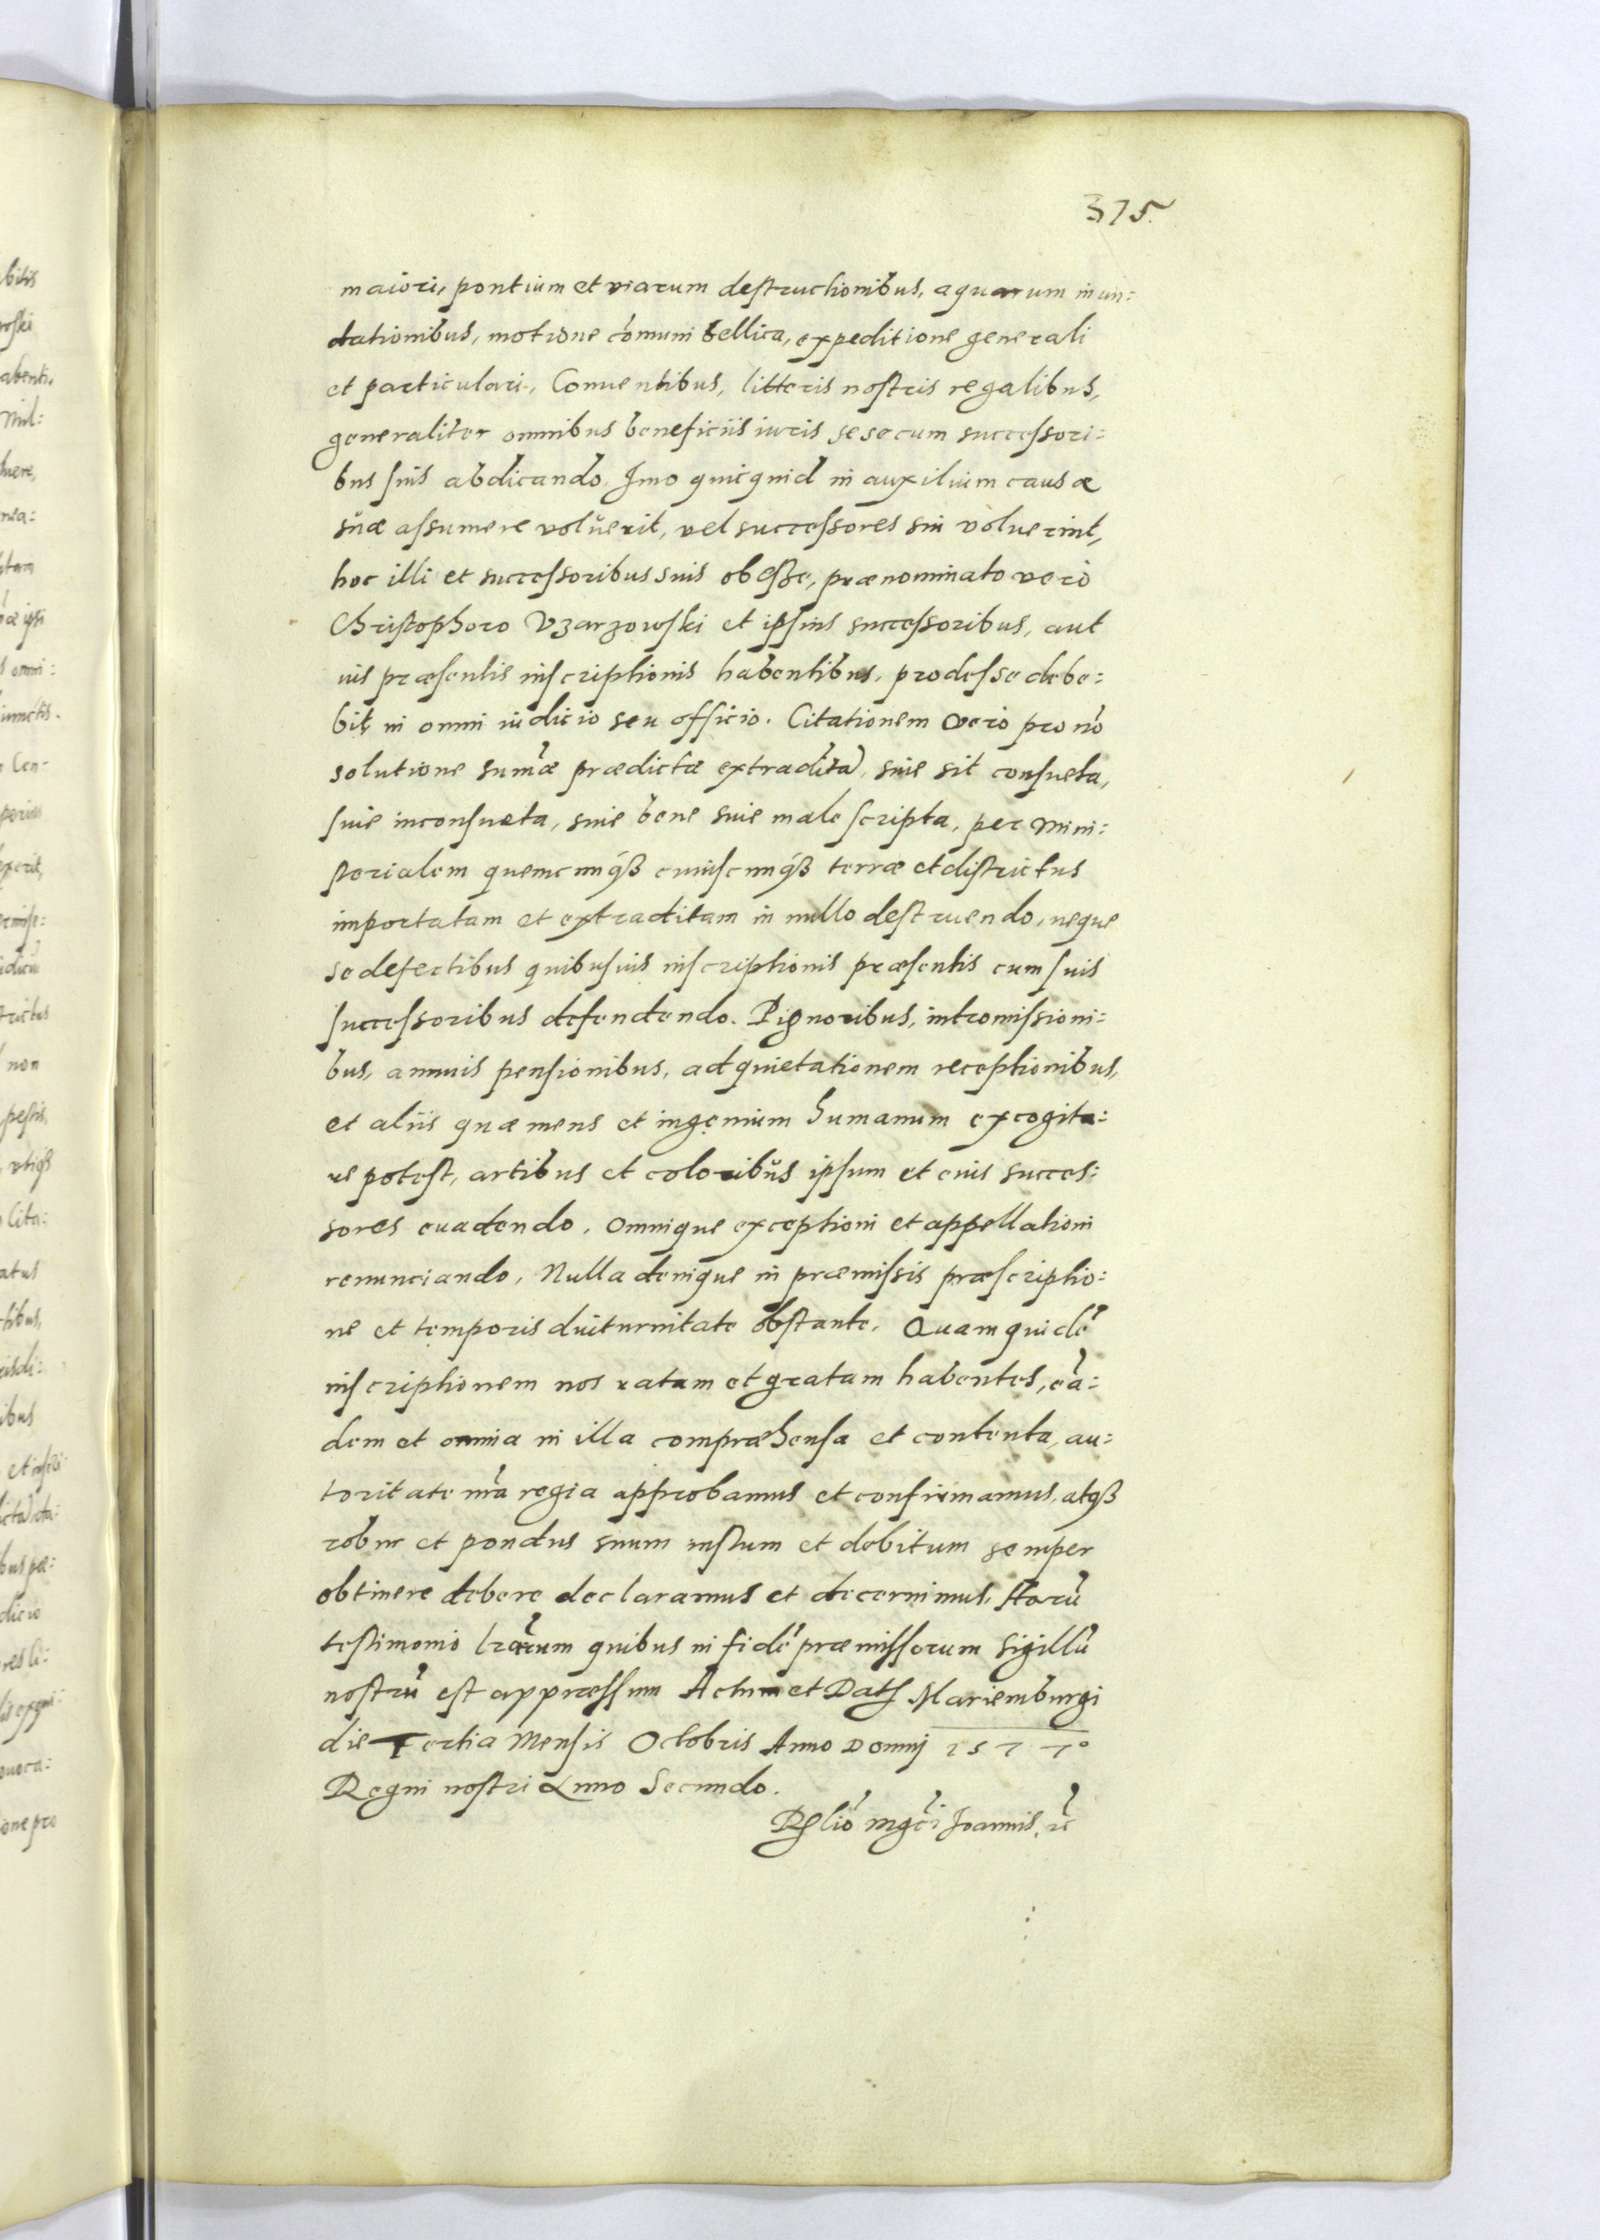 375.
maiori, pontium et viarum destructionibus, aquarum inun:
dationibus, motione cōmuni bellica, expeditione generali
et particulari, Conuentibus, litteris nostris regalibus,
generaliter omnibus beneficiis iuris sese cum successori:
bus suis abdicando. Imo quicquid in auxilium causæ
suæ assumere voluerit, vel successores sui voluerint,
hoc illi et successoribus suis obesse, prænominato vero
Christophoro Vzarzowski et ipsius successoribus, aut
ius præsentis inscriptionis habentibus, prodesse debe:
bit in omni iudicio seu officio. Citationem vero pro nō
solutione sum̃æ prædictæ extraditā, siue sit consueta,
siue inconsueta, siue bene siue male scripta, per Mini:
sterialem quemcunqꝫ cuiuscunqꝫ terræ et districtus
importatam et extraditam in nullo destruendo, neque
se defectibus quibusuis inscriptionis præsentis cum suis
successoribus defendendo. Pignoribus, intromissioni:
bus, annuis pensionibus, ad quietationem receptionibus,
et aliis quæ mens et ingenium humanum excogita:
re potest, artibus et coloribus ipsum et eius succes:
sores euadendo. Omnique exceptioni et appellationi
renunciando, Nulla denique in præmissis præscriptio:
ne et temporis diuturnitate obstante. Quam quidē
inscriptionem nos ratam et gratam habentes, eā:
dem et omnia in illa compræhensa et contenta, au:
toritate nr̃a regia approbamus et confirmamus, atqꝫ
robur et pondus suum iustum et debitum semper
obtinere debere declaramus et decernimus, Harū
testimonio lrãrum quibus in fidē præmissorum sigillū
nostrū est appressum Actum et Dat Mariemburgi
die Tertia Mensis Octobris Anno Domnj 1577º
Regni nostri Anno Secundo.
Rlio mgci Joannis, rc